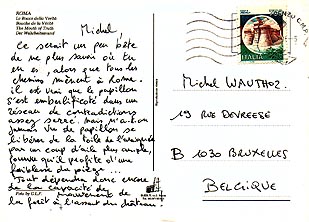 ROMA
La Bocca della Verità
Bouche de la Vérité
The Mouth of Truth
Der Wahrheitsmund
Michel,
Ce serait un peu bête
de ne plus savoir où tu
en es, alors que tous les
chemins mènent à Rome.
il est vrai que le papillon
s'est embuificoté dans un
réseau de contradictions
assez serré. Mais m'a-t-on
jamais vu de papillon se
libérer de la toile de l'araignée
par un coup d'aile plus ample,
pourvu qu'il profite d'une
faiblesse du piège...
Tout dépendra donc encore
de la capacité de
mouvement de
la forêt à l'assaut du château.
Foto by C.L.F.
ITALIA
Michel WAUTHOZ
19 RUE DEVREESE
B 1030 BRUXELLES
BELGIQUE